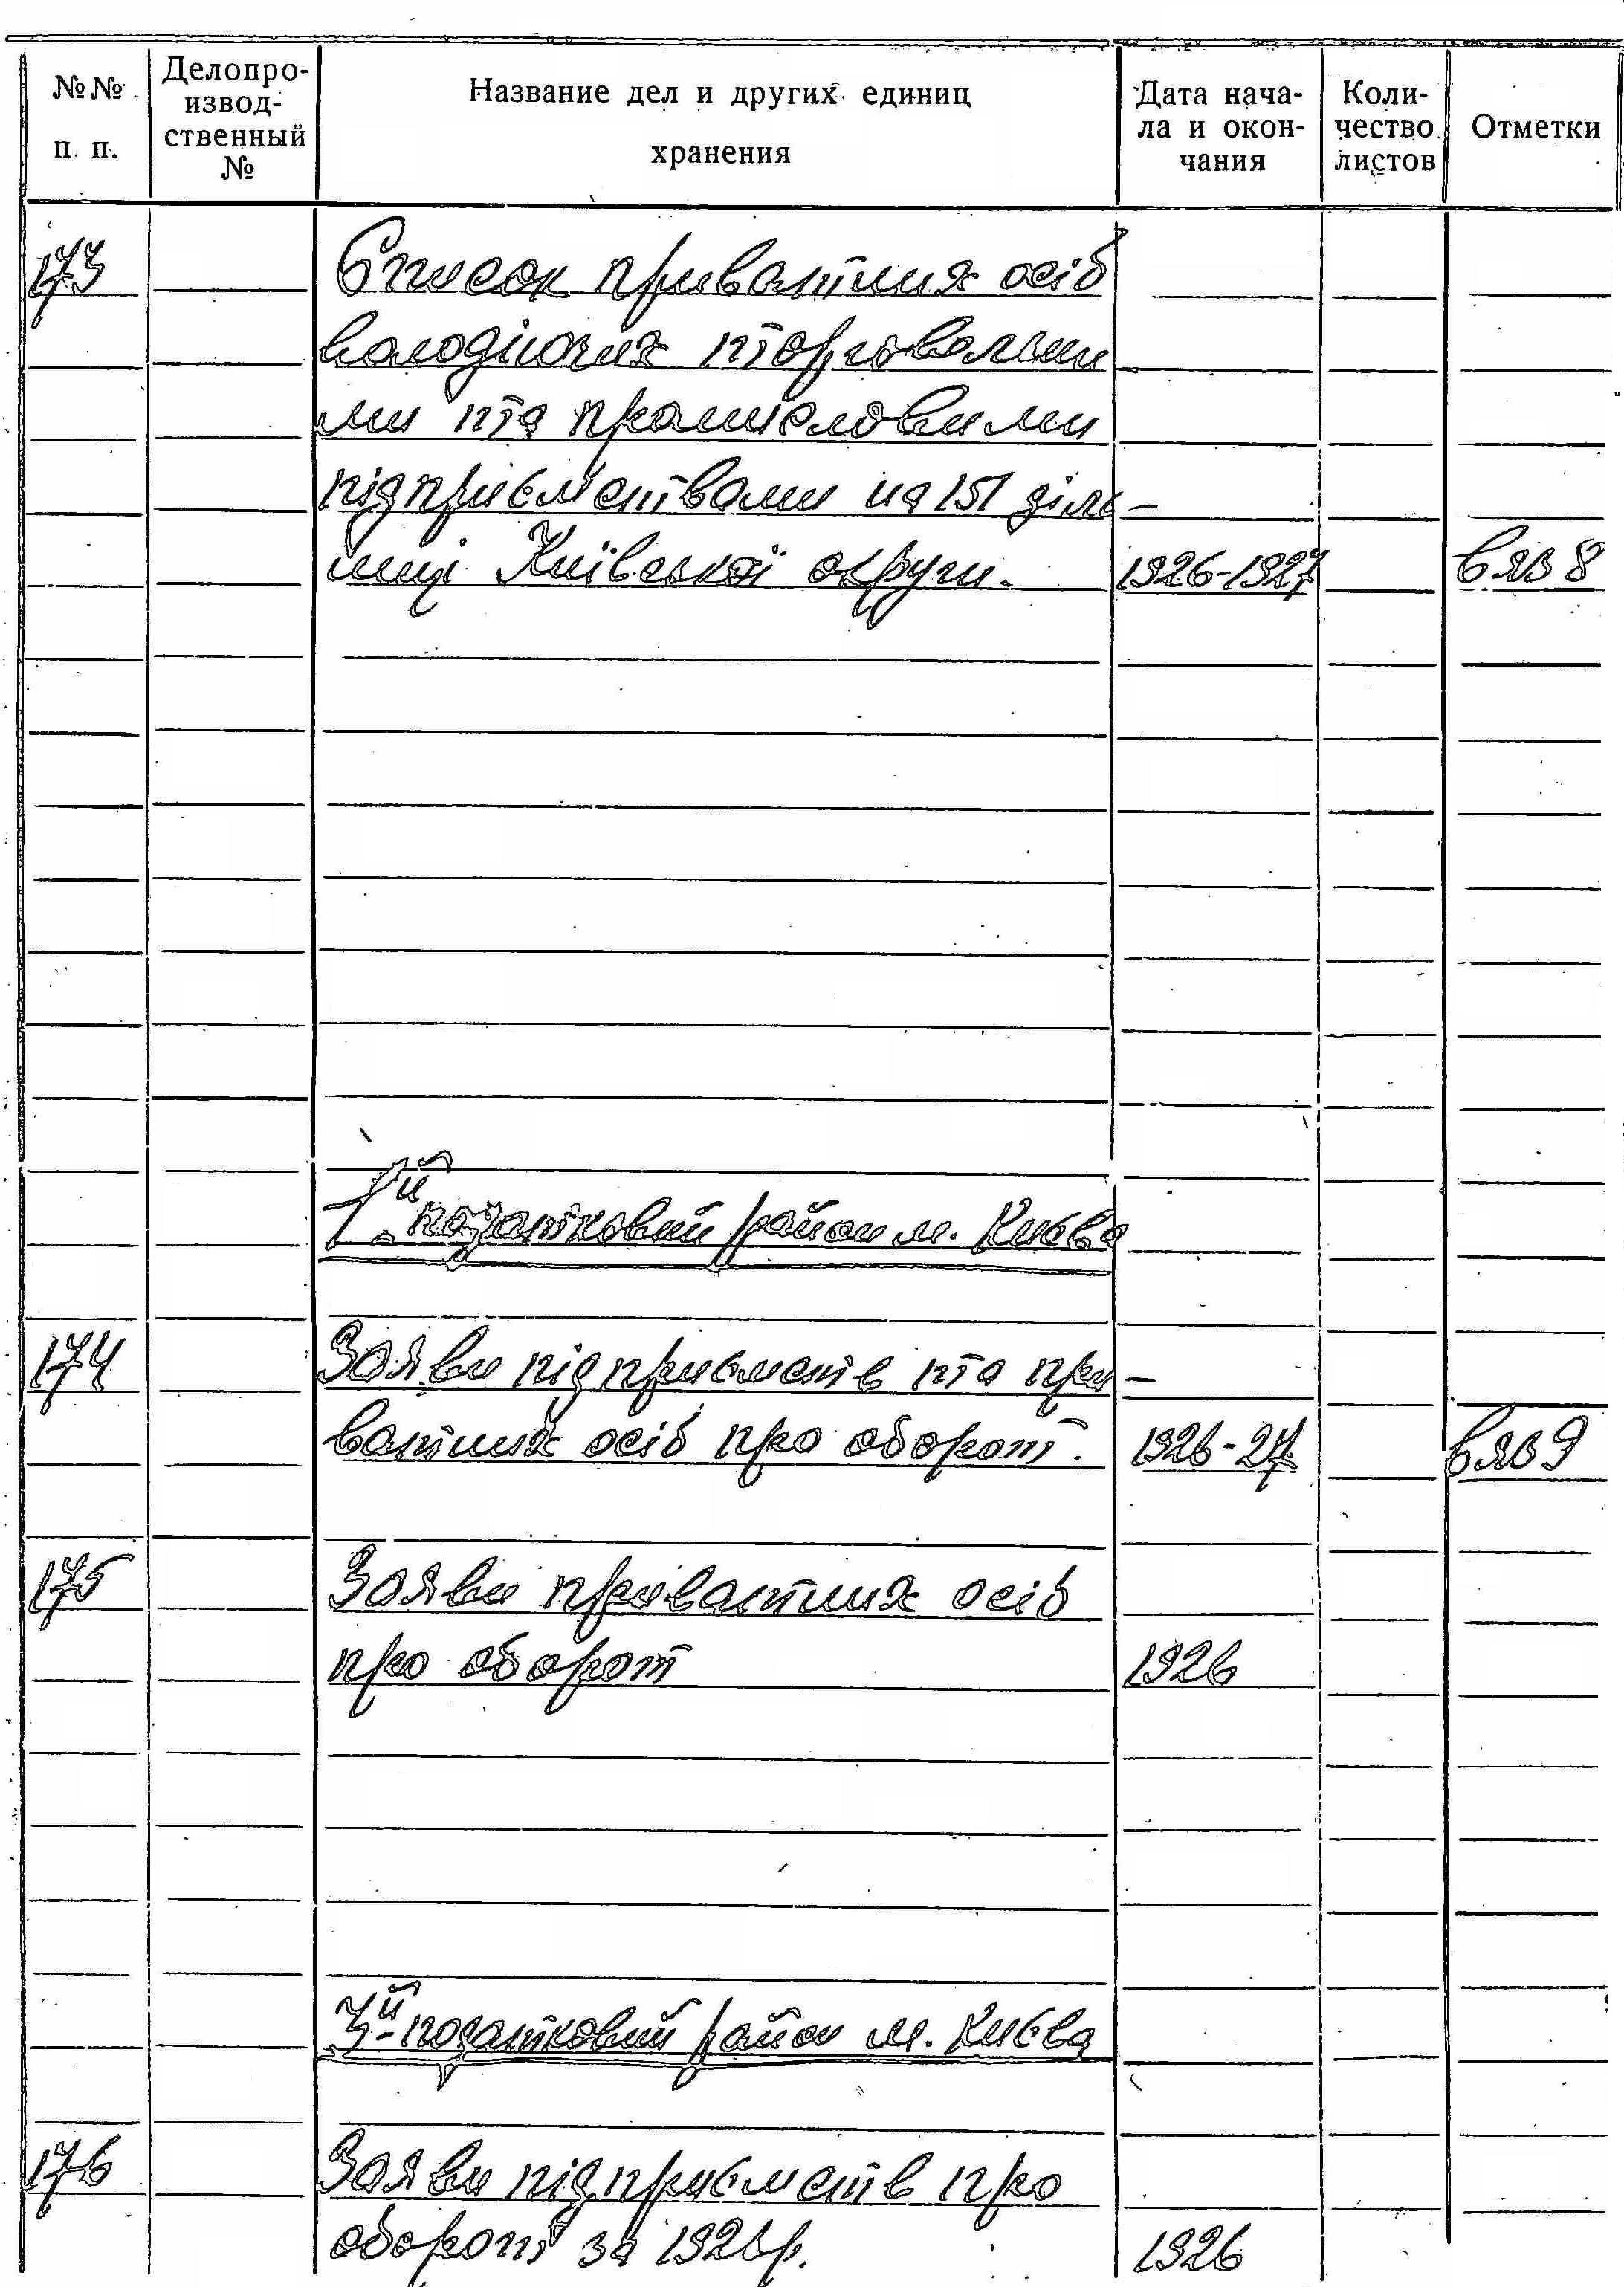 №№ п. п.
Делопро-
извод-
ственный
№
Название дел и других единиц
хранения
Дата нача-
ла и окон-
чания
Коли-
чество
листов
Отметки
173 Список приватних осіб
володіючих торговельни
ми та промисловими
підприємствами на 151 діль-
ниці Київської округи. 1926-1927 вяз 8
1й податковий район м. Києва
174 Заяви підприємств та при-
ватних осіб про оборот. 1926-27 вяз 9
175 Заяви приватних осіб
про оборот 1926
3й податковий район м. Києва
176 Заяви підприємств про
оборот за 1926р. 1926